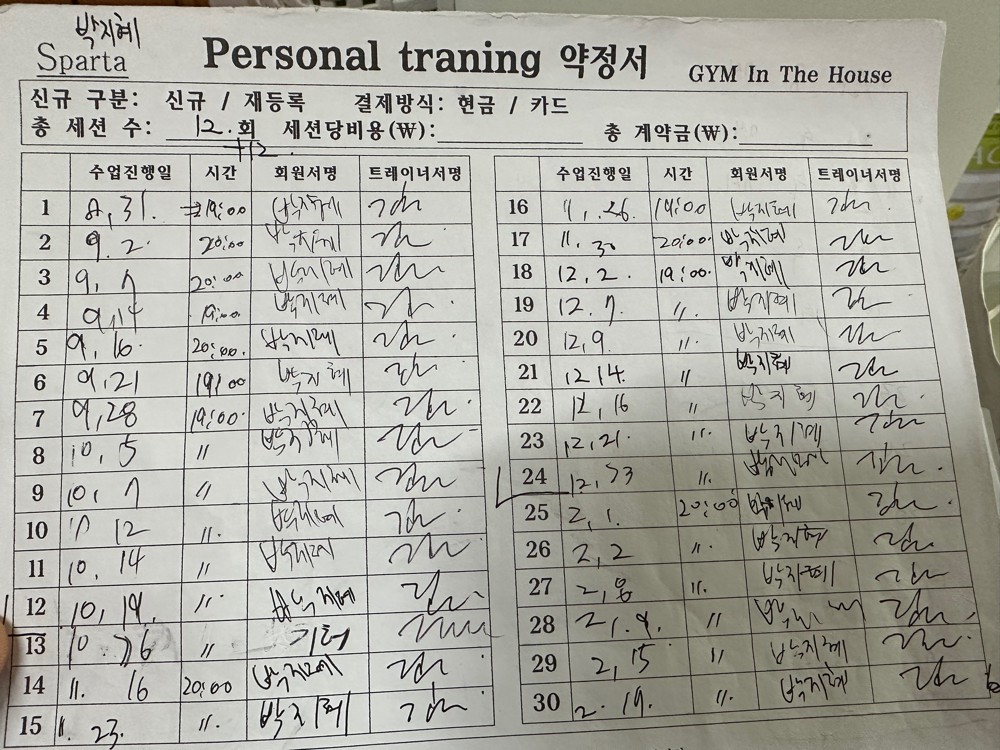 박지혜
Sparta
Personal traning 약정서
GYM In The House
신규 구분: 신규 / 재등록 결제방식: 현금 / 카드
총 세션 수: 12.회 세션당비용(₩): 총 계약금(₩):
+12.
수업진행일 시간 회원서명 트레이너서명
1 8,31. 19:00 박지혜
2 9.2. 20:00 박지혜
3 9,7 20:00 박지혜
4 9,14 19:00 박지혜
5 9,16. 20:00. 박지혜
6 9,21 19:00 박지혜
7 9,28 19:00. 박지혜
8 10,5 〃 박지혜
9 10,7 〃 박지혜
10 10 12 〃. 박지혜
11 10,14 〃 박지혜
12 10,19. 〃. 박지혜
13 10. 26 〃
14 11. 16 20:00 박지혜
15 11. 23. 〃. 박지혜
수업진행일 시간 회원서명 트레이너서명
16 11,26. 19:00 박지혜
17 11.30 20:00. 박지혜
18 12,2. 19:00. 박지혜
19 12.7. 〃. 박지혜
20 12,9. 〃. 박지혜
21 12 14. 〃 박지혜
22 12,16 〃 박지혜
23 12,21. 〃. 박지혜
24 12,23 〃. 박지혜
25 2,1. 20:00 박지혜
26 2,2 〃. 박지혜
27 2,8 〃. 박지혜
28 2,9. 〃
29 2,15 〃 박지혜
30 2.19. 〃. 박지혜